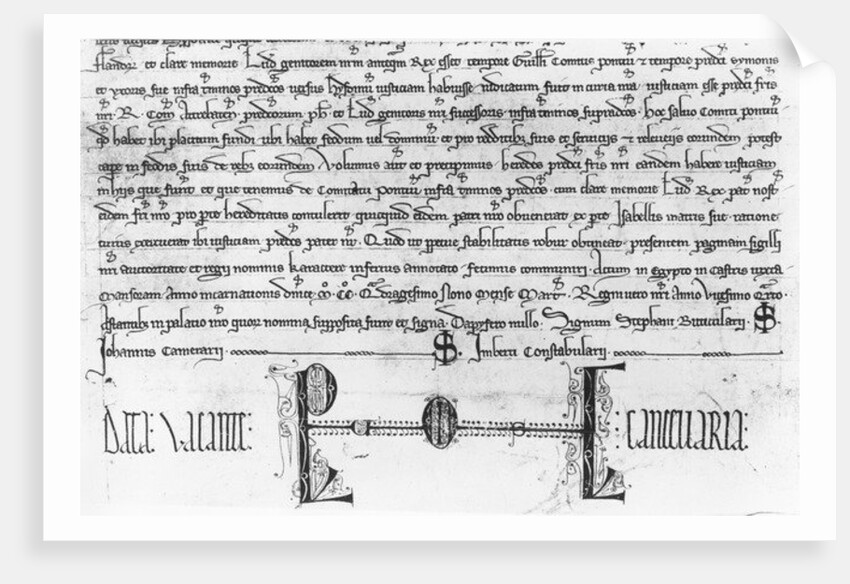 flandr et clare memorie Lud genitorem nrm antequam Rex esset tempore Guilli Comitis pontivi et tempore predci symonis
et uxoris sue infra terminos predcos iusticiam habuisse iudicatum fuit in curia nra iusticiam esse predci fris
nri R. Com Attrebaten predecorum ph et Lud genitoris nri successoris infra terminos supradcos. Hoc salvo Comiti pontivi
qd habet ibi placitum fundi ubi habet feodum vel dominium et pro redditibus suis et serviciis et releveiis eorundem potest
cape in feodis suis de rebus eorundem. Volumus aut et precipimus heredes predci fris nri eandem habere iusticiam
in hiis que sunt et que tenemus de Comitatu pontivi infra terminos predcos. cum clare memorie Lud Rex pat nost
eidem fri nro pro parte hereditatis contulerit quicquid eidem patri nro obvenerat ex parte Isabellis matris sue ratione
cuius exercuerat ibi iusticiam predcus pater nr. Quod ut perpetue stabilitatis robur obtineat. presentem paginam sigilli
nri auctoritate et regii nominis karactere inferius annotato fecimus communiri. Actum in Egypto in castris iuxta
Mansoram. Anno incarnationis dnice Mo. CCo. Quadragesimo Nono Mense Marc. Regni vero nri Anno vicesimo Quarto.
Astantibus in palatio nro quor nomina supposita sunt et signa. Dapifero nullo. Signum Stephani Buticularii. S.
Johannis Camerarii. S. Imberti Constabularii.
DATA: VACANTE: CANCELLARIA: